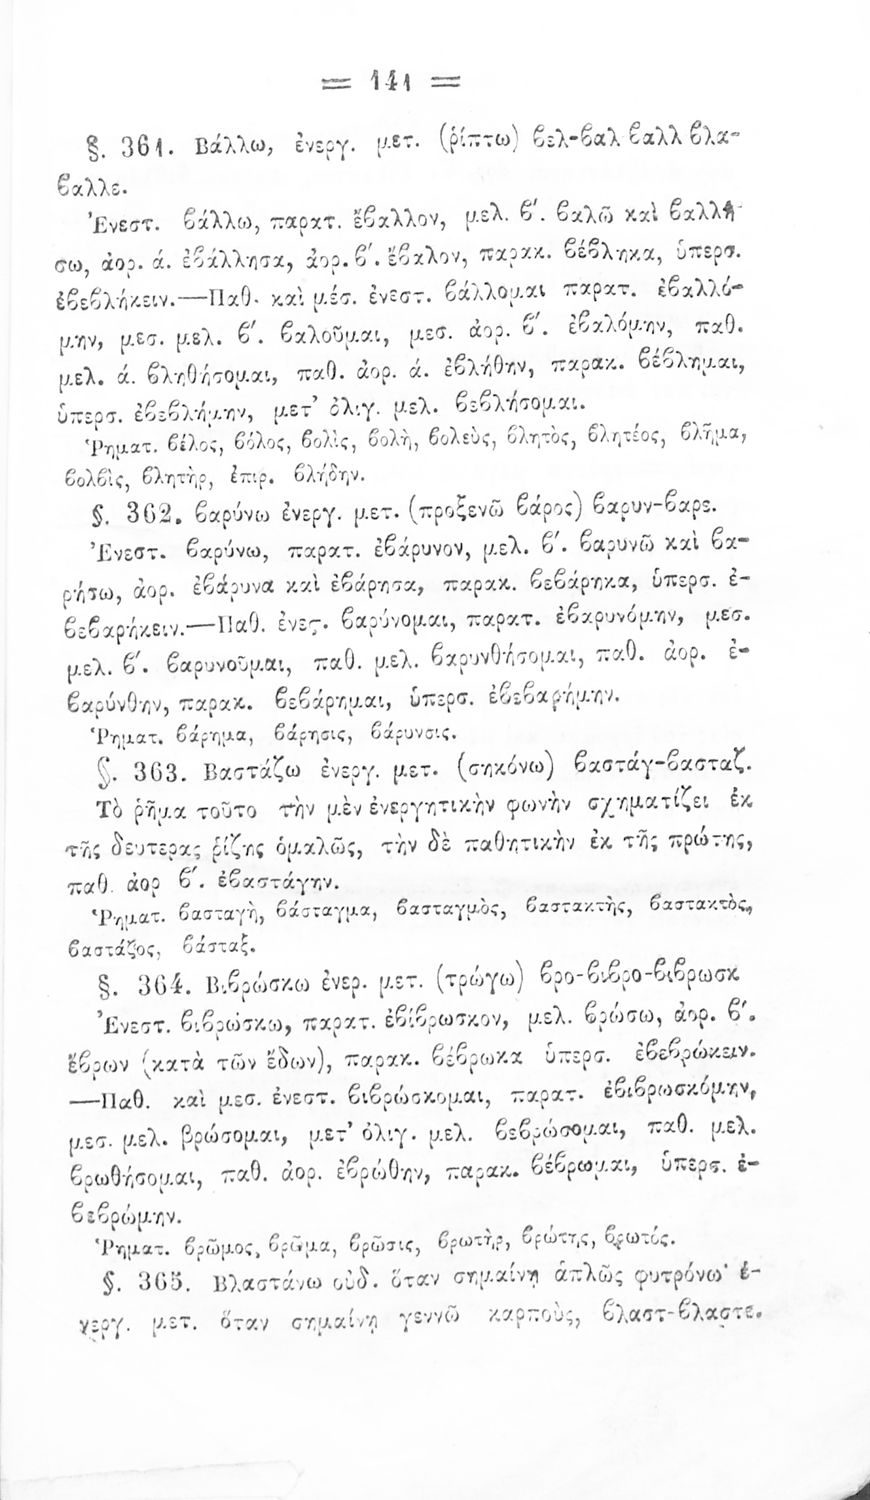 = 141 =
§. 361. Βάλλω, ἐνεργ. μετ. (ῥίπτω) ϐελ-ϐαλ ϐαλλ ϐλα-
ϐαλλε.
Ἐνεστ. ϐάλλω, παρατ. ἔϐαλλον, μελ. ϐ΄. ϐαλῶ καὶ ϐαλλή-
σω, ἀορ. ά. ἐϐάλλησα, ἀορ. ϐ΄. ἔϐαλον, παρακ. ϐέϐληκα, ὑπερσ.
ἐϐεϐλήκειν.—Παθ. καὶ μέσ. ἐνεστ. ϐάλλομαι παρατ. ἐϐαλλό-
μην, μεσ. μελ. ϐ΄. ϐαλοῦμαι, μεσ. ἀορ. ϐ΄. ἐϐαλόμην, παθ.
μελ. ά. ϐληθήσομαι, παθ. ἀορ. ά. ἐϐλήθην, παρακ. ϐέϐλημαι,
ὑπερσ. ἐϐεϐλήμην, μετ’ ὀλιγ. μελ. ϐεϐλήσομαι.
Ῥηματ. ϐέλος, ϐόλος, ϐολὶς, ϐολὴ, ϐολεὺς, ϐλητὸς, ϐλητέος, ϐλῆμα,
ϐολϐὶς, ϐλητὴρ, ἐπιρ. ϐλήδην.
§. 362. ϐαρύνω ἐνεργ. μετ. (προξενῶ ϐάρος) ϐαρυν-ϐαρε.
Ἐνεστ. ϐαρύνω, παρατ. ἐϐάρυνον, μελ. ϐ΄. ϐαρυνῶ καὶ ϐα-
ρήσω, ἀορ. ἐϐάρυνα καὶ ἐϐάρησα, παρακ. ϐεϐάρηκα, ὑπερσ. ἐ-
ϐεϐαρήκειν.—Παθ. ἐνεϛ. ϐαρύνομαι, παρατ. ἐϐαρυνόμην, μεσ.
μελ. ϐ΄. ϐαρυνοῦμαι, παθ. μελ. ϐαρυνθήσομαι, παθ. ἀορ. ἐ-
ϐαρύνθην, παρακ. ϐεϐάρημαι, ὑπερσ. ἐϐεϐαρήμην.
Ῥηματ. ϐάρημα, ϐάρησις, ϐάρυνσις.
§. 363. Βαστάζω ἐνεργ. μετ. (σηκόνω) ϐαστάγ-ϐασταζ.
Τὸ ῥῆμα τοῦτο τὴν μὲν ἐνεργητικὴν φωνὴν σχηματίζει ἐκ
τῆς δευτερας ῥίζης ὁμαλῶς, τὴν δὲ παθητικὴν ἐκ τῆς πρώτης,
παθ. ἀορ ϐ΄. ἐϐαστάγην.
Ῥηματ. ϐασταγὴ, ϐάσταγμα, ϐασταγμὸς, ϐαστακτὴς, ϐαστακτὸς,
ϐαστάζος, ϐάσταξ.
§. 364. Βιϐρώσκω ἐνερ. μετ. (τρώγω) ϐρο-ϐιϐρο-ϐιϐρωσκ
Ἐνεστ. ϐιϐρώσκω, παρατ. ἐϐίϐρωσκον, μελ. ϐρώσω, ἀορ. ϐ΄.
ἔϐρων (κατὰ τῶν ἔδων), παρακ. ϐέϐρωκα ὑπερσ. ἐϐεϐρώκειν.
—Παθ. καὶ μεσ. ἐνεστ. ϐιϐρώσκομαι, παρατ. ἐϐιϐρωσκόμην,
μεσ. μελ. βρώσομαι, μετ’ ὀλιγ. μελ. ϐεϐρώσομαι, παθ. μελ.
ϐρωθήσομαι, παθ. ἀορ. ἐϐρώθην, παρακ. ϐέϐρωμαι, ὑπερσ. ἐ-
ϐεϐρώμην.
Ῥηματ. ϐρῶμος, ϐρῶμα, ϐρῶσις, ϐρωτὴρ, ϐρώτης, ϐρωτός.
§. 365. Βλαστάνω οὐδ. ὅταν σημαίνῃ ἁπλῶς φυτρόνω· ἐ-
νεργ. μετ. ὅταν σημαίνῃ γεννῶ καρποὺς, ϐλαστ-ϐλαστε.